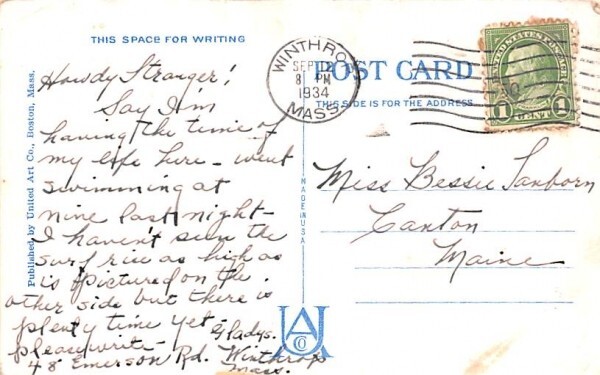 THIS SPACE FOR WRITING
Howdy Stranger!
Say I'm
having the time of
my life here - went
swimming at
nine last night -
I haven't seen the
surf rise as high as
is pictured on the
other side but there is
plenty time yet -
Gladys.
please write -
48 Emerson Rd. Winthrop
Mass.
Published by United Art Co., Boston, Mass.
MADE IN USA
UA
CO
WINTHROP
SEP 12
8 PM
1934
MASS.
POST CARD
THIS SIDE IS FOR THE ADDRESS
UNITED STATES POSTAGE
1 CENT 1
Miss Bessie Sanborn
Canton
Maine